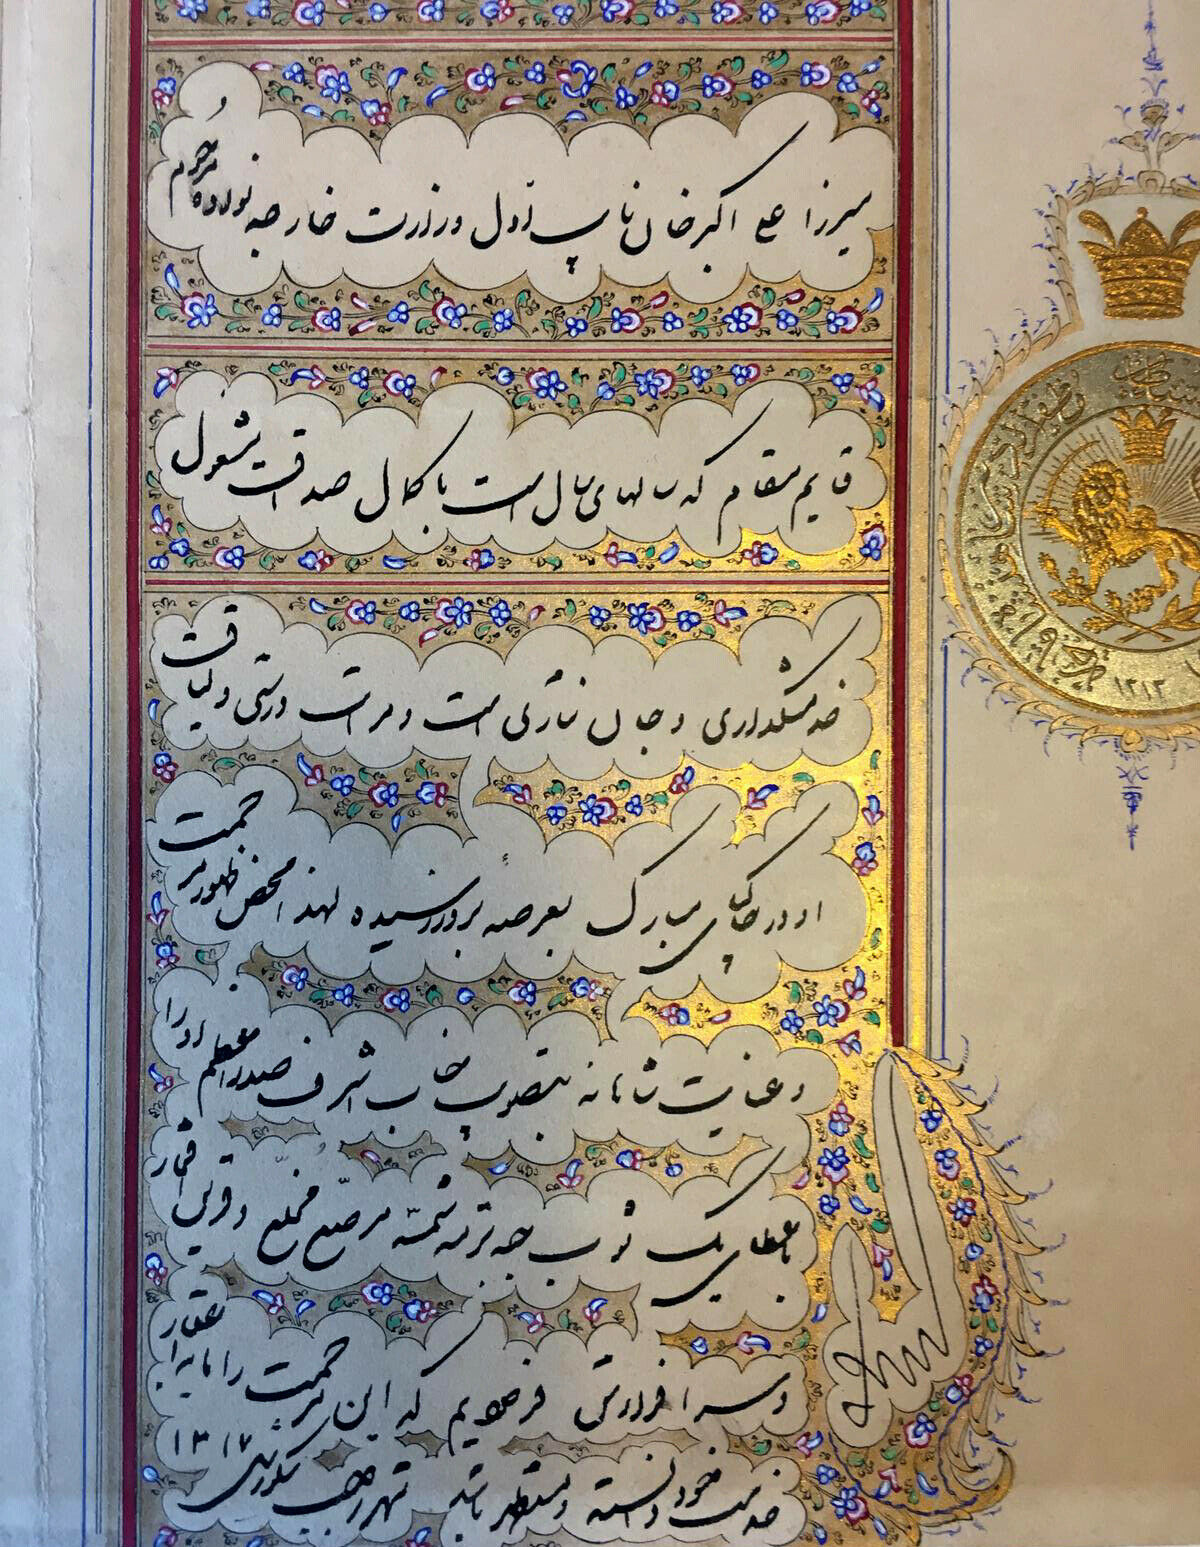 میرزا علی اکبرخان نایب اول وزارت خارجه نواده مرحوم
قایم مقام که سالهای سال است با کمال صداقت مشغول
خدمتگذاری و جان نثاری است و مراتب درستی و لیاقت
او در خاکپای مبارک بعرصه بروز رسیده لهذا محض ظهور مرحمت
و عنایت شاهانه بتصویب جناب اشرف صدراعظم او را
باعطای یک ثوب جبه ترمه شمسه مرصع مخلع و قرین افتخار
و سرافرازی فرمودیم که این مرحمت را مایه اعتبار
خدمت خود دانسته و مستظهر باشد شهر رجب ۱۳۱۷
۱۳۱۳